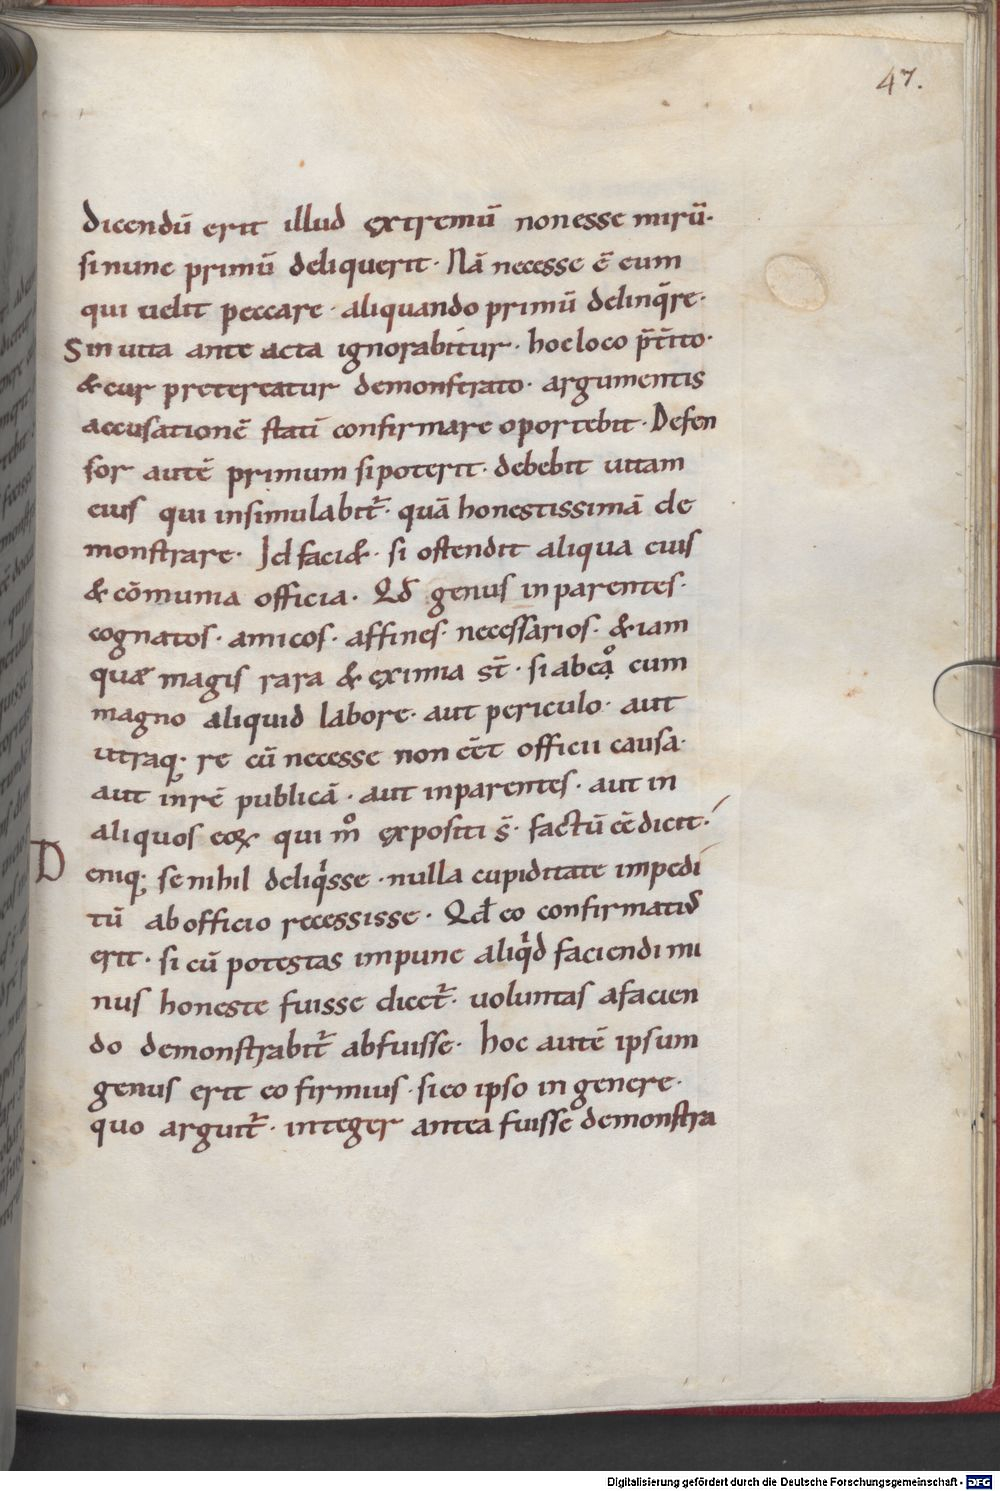 47.
dicendū erit illud extremū non esse mirū·
si nunc primū deliquerit· Nā necesse ē eum
qui uelit peccare· aliquando primū delinq̄re·
Sin uita ante acta ignorabitur· hoc loco p̄t̄ito·
& cur pretereatur demonstrato· argumentis
accusationē statī confirmare oportebit· Defen
sor autē primum si poterit· debebit uitam
eius qui insimulabit̄· quā honestissimā de
monstrare· Id faci&· si ostendit aliqua eius
& cōmunia officia· Qd̄ genus in parentes·
cognatos· amicos· affines· necessarios· &iam
quæ magis rara & eximia st̄· si ab eo cum
magno aliquid labore· aut periculo· aut
utraq; re cū necesse non eēt officii causa·
aut in rē publicā· aut in parentes· aut in
aliquos eoꝝ qui m̊ expositi s̄· factū eē dicit·
Deniq; se nihil deliq'sse· nulla cupiditate impedi
tū ab officio recessisse· Qd̄ eo confirmatiꝰ
erit· si cū potestas impune aliq'd faciendi mi
nus honeste fuisse dicet̄· uoluntas a facien
do demonstrabit̄ abfuisse· hoc autē ipsum
genus erit eo firmius· si eo ipso in genere·
quo arguit̄· integer antea fuisse demonstra
Digitalisierung gefördert durch die Deutsche Forschungsgemeinschaft - DFG